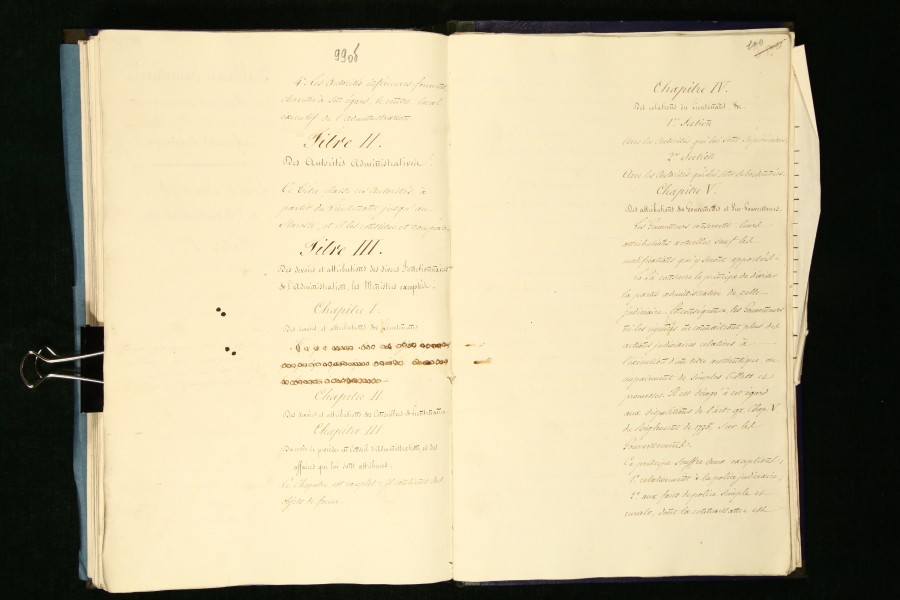 990b
4º Les Autorités inférieures forment,
chacune à son égard, le centre local
exécutif de l'administration.
Titre II.
Des Autorités Administratives.
Ce Titre classe ces autorités à
partir du Lieutenant jusqu'au
Ministre, et il est
Titre III.
Des devoirs et attributions des divers Fonctionnaires
de l'Administration, les Ministres exceptés.
Chapitre I.
Des devoirs et attributions des Lieutenants
Chapitre II.
Des devoirs et attributions des Conseillers de Lieutenance
Chapitre III.
Du mode de procéder en Conseil d'Administration, et des
affaires qui lui sont attribuées.
Ce Chapitre est complet; il contient des
objets de forme.
Chapitre IV.
Des relations du Lieutenant &c.
1re Section
Avec les Autorités qui lui sont supérieures
2e Section
Avec les Autorités qui lui sont subordonnées.
Chapitre V.
Des attributions des Gouverneurs et Vice-Gouverneurs.
Les Gouverneurs conservent leurs
attributions actuelles sauf les
modifications qui y seront apportées.
Ici l'on conserve le principe de diviser
la partie administrative de celle
judiciaire. En conséquence, les Gouverneurs
ne connaîtront plus des
actions judiciaires relatives à
l'exécution d'un titre authentique, ou
au paiement de simples billets et
promesses. Il est dérogé à cet égard
aux dispositions de l'art. 91, Chap. V.
du Règlement de 1775, sur les
Gouvernements.
Ce principe souffre deux exceptions;
1º relativement à la police judiciaire,
2º aux faits de police simple et
rurale, dont la connaissance est